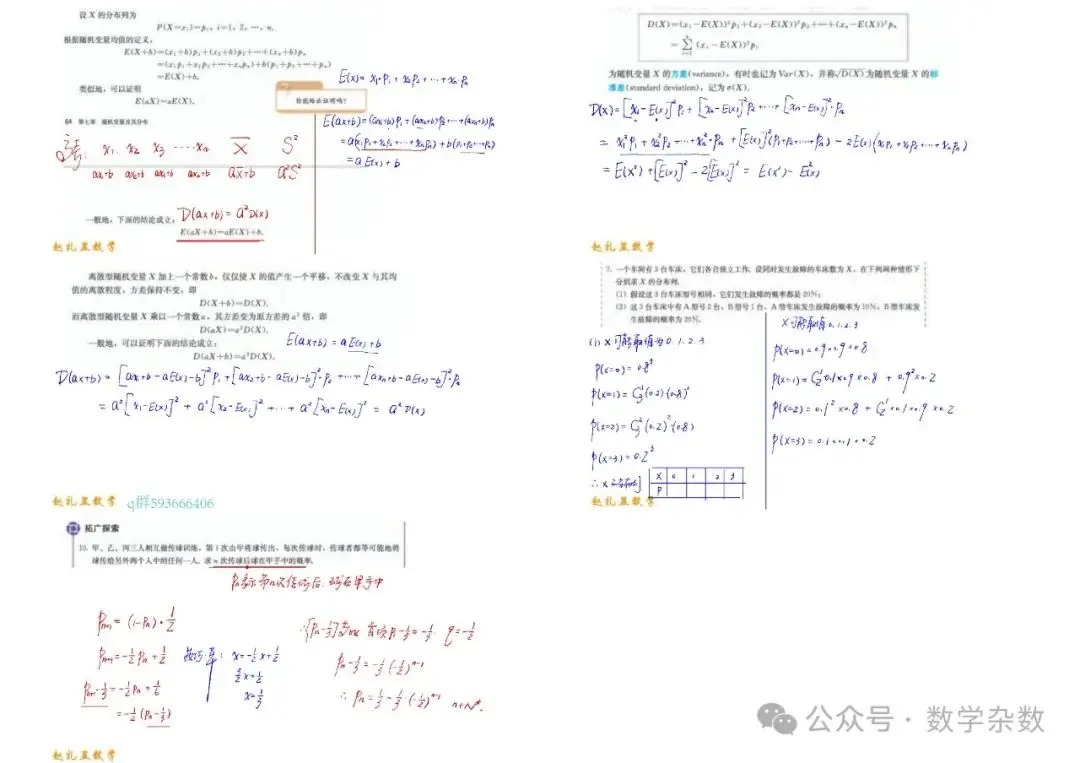 设 X 的分布列为
P(X=xᵢ)=pᵢ, i=1, 2, …, n.
根据随机变量均值的定义,
E(X+b)=(x₁+b)p₁+(x₂+b)p₂+…+(xₙ+b)pₙ
=(x₁p₁+x₂p₂+…+xₙpₙ)+b(p₁+p₂+…+pₙ)
=E(X)+b.
类似地,可以证明
E(aX)=aE(X).
你能给出证明吗?
64 第七章 随机变量及其分布
E(x)=x₁·p₁+x₂p₂+…+xₙpₙ
E(ax+b)=(ax₁+b)p₁+(ax₂+b)p₂…+(axₙ+b)pₙ
=a(x₁p₁+x₂p₂+…+xₙpₙ)+b(p₁+p₂…+pₙ)
=aE(x)+b
x₁ x₂ x₃ ……xₙ x̄ S²
ax₁+b ax₂+b ax₃+b axₙ+b ax̄+b a²S²
D(ax+b)=a²D(x)
一般地,下面的结论成立:
E(aX+b)=aE(X)+b.
赵礼显数学
D(X)=(x₁-E(X))²p₁+(x₂-E(X))²p₂+…+(xₙ-E(X))²pₙ
=∑ⁿᵢ₌₁(xᵢ-E(X))²pᵢ
为随机变量 X 的方差(variance),有时也记为 Var(X),并称√D(X)为随机变量 X 的标
准差(standard deviation),记为 σ(X).
D(x)=[x₁-E(x)]²p₁+[x₂-E(x)]²p₂…+[xₙ-E(x)]²·pₙ
=x₁²p₁+x₂²p₂…+xₙ²·pₙ+[E(x)]²(p₁+p₂…+pₙ)-2E(x)(x₁p₁+x₂p₂+…+xₙpₙ)
=E(x²)+[E(x)]²-2[E(x)]²=E(x²)-E²(x)
赵礼显数学
离散型随机变量 X 加上一个常数 b,仅仅使 X 的值产生一个平移,不改变 X 与其均
值的离散程度,方差保持不变,即
D(X+b)=D(X).
而离散型随机变量 X 乘以一个常数 a,其方差变为原方差的 a² 倍,即
D(aX)=a²D(X).
一般地,可以证明下面的结论成立:
D(aX+b)=a²D(X).
E(ax+b)=aE(x)+b
D(ax+b)=[ax₁+b-aE(x)-b]²p₁+[ax₂+b-aE(x)-b]²·p₂…+[axₙ+b-aE(x)-b]²·pₙ
=a²[x₁-E(x)]²+a²[x₂-E(x)]²+…+a²[xₙ-E(x)]²=a²D(x)
赵礼显数学 q群593666406
7. 一个车间有3台车床,它们各自独立工作. 设同时发生故障的车床数为 X,在下列两种情形下
分别求 X 的分布列.
(1) 假设这3台车床型号相同,它们发生故障的概率都是20%;
(2) 这3台车床中有A型号2台,B型号1台,A型车床发生故障的概率为10%,B型车床发
生故障的概率为20%.
(1) X可能取值为0.1.2.3
P(x=0)=0.8³
P(x=1)=C₃¹(0.2)(0.8)²
P(x=2)=C₃²(0.2)²(0.8)
P(x=3)=0.2³
X 0 1 2 3
P
X可能取值0.1.2.3
P(x=0)=0.9×0.9×0.8
P(x=1)=C₂¹0.1×0.9×0.8+0.9²×0.2
P(x=2)=0.1²×0.8+C₂¹×0.1×0.9×0.2
P(x=3)=0.1×0.1×0.2
赵礼显数学
拓广探索
10. 甲、乙、丙三人相互做传球训练,第1次由甲将球传出,每次传球时,传球者都等可能地将
球传给另外两个人中的任何一人. 求 n 次传球后球在甲手中的概率.
Pₙ表示第n次传球后,球在甲手中
Pₙ₊₁=(1-Pₙ)·1/2
Pₙ₊₁=-1/2Pₙ+1/2
Pₙ₊₁-1/3=-1/2Pₙ+1/6
=-1/2(Pₙ-1/3)
x=-1/2x+1/2
3/2x=1/2
x=1/3
∴{Pₙ-1/3} 首项P₁-1/3=-1/3 q=-1/2
Pₙ-1/3=-1/3(-1/2)ⁿ⁻¹
∴Pₙ=1/3-1/3·(-1/2)ⁿ⁻¹ n∈N*.
赵礼显数学
公众号 · 数学杂数